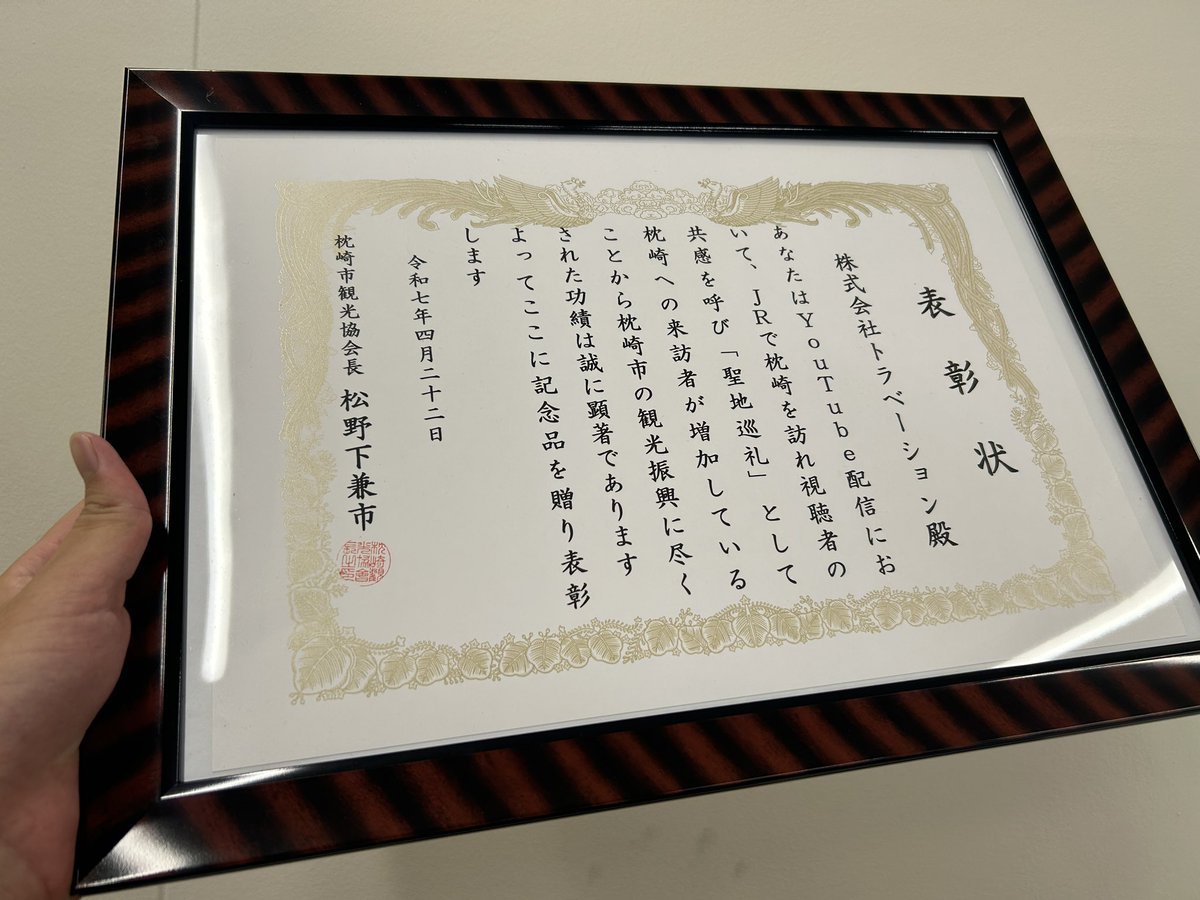 表彰状
株式会社トラベーション殿
あなたはYouTube配信にお
いて、JRで枕崎を訪れ視聴者の
共感を呼び「聖地巡礼」として
枕崎への来訪者が増加している
ことから枕崎市の観光振興に尽く
された功績は誠に顕著であります
よってここに記念品を贈り表彰
します
令和七年四月二十二日
枕崎市観光協会長 松野下兼市